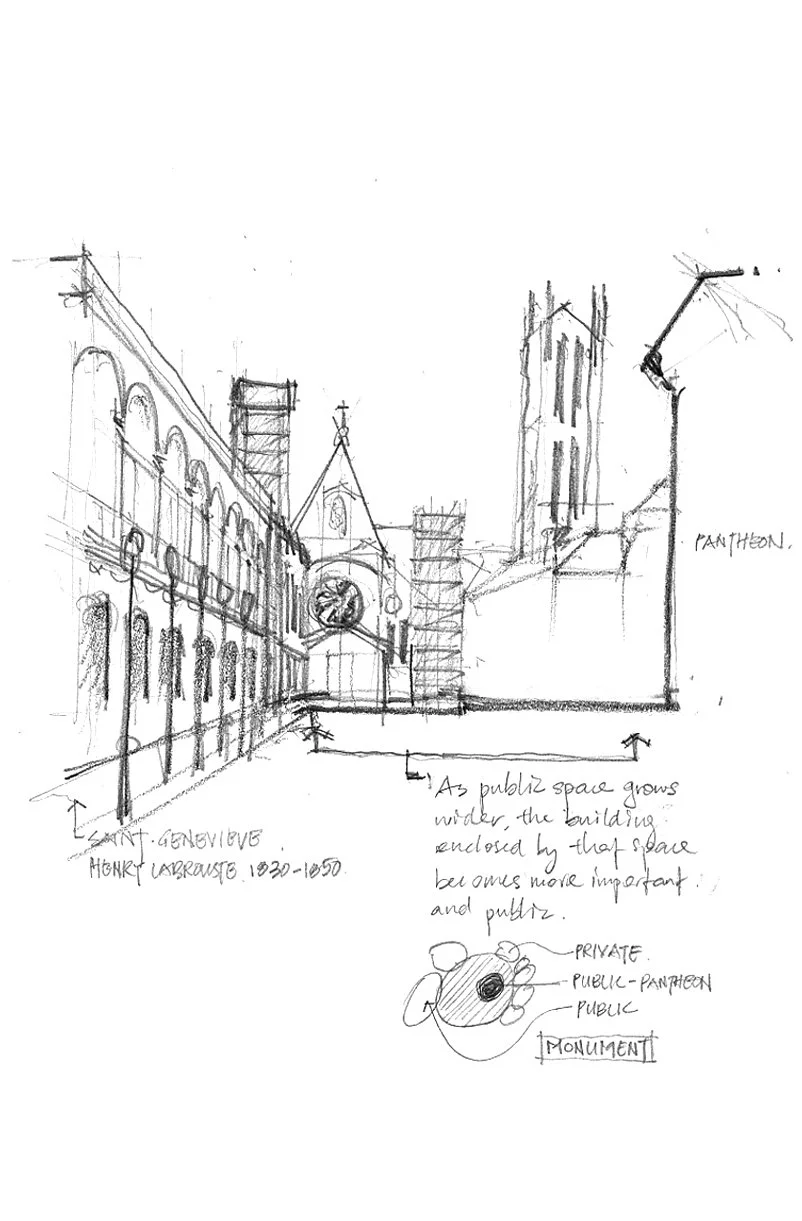 PANTHEON.
As public space grows
wider, the building
enclosed by that space
becomes more important
and public.
SAINT-GENEVIEVE
HENRY LABROUSTE 1830-1850.
PRIVATE.
PUBLIC-PANTHEON
PUBLIC
MONUMENT